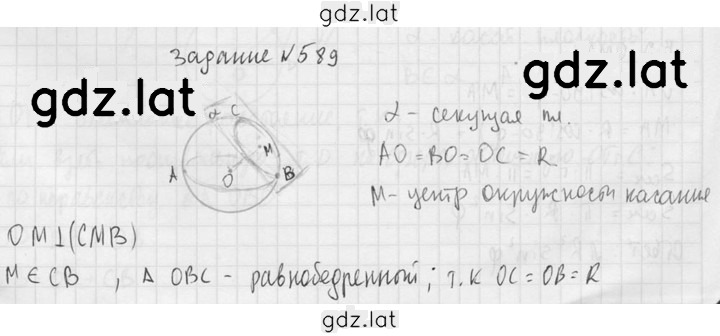 gdz.lat
Задание №589
gdz.lat
gdz.lat
α C
M
A
O
B
α - секущая пл.
AO = BO = OC = R
M - центр окружности касание
OM ⊥ (CMB)
M ∈ CB , Δ OBC - равнобедренный; т.к OC = OB = R
gdz.lat